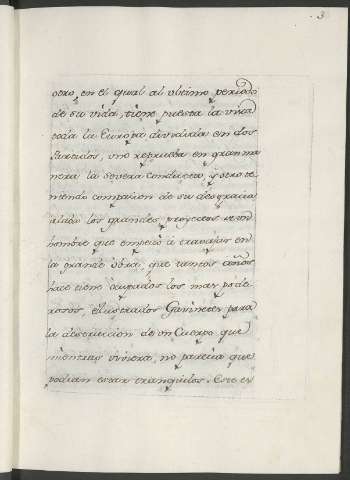 3
otro, en el qual al ultimo periodo
de su vida, tiene puesta la vista
toda la Europa dividida en dos
Partidos, uno reprueba en gran ma
nera la severa conducta, y otro te
niendo compasion de su desgracia
los grandes proyectos de un
hombre que empezó á trabajar en
la grande obra, que tantos años
hace tiene ocupados los mas pode
rosos, é ilustrados Gavinetes para
la destruccion de un Cuerpo que
mientras viviera, no parecia que
podian estar tranquilos. Este es